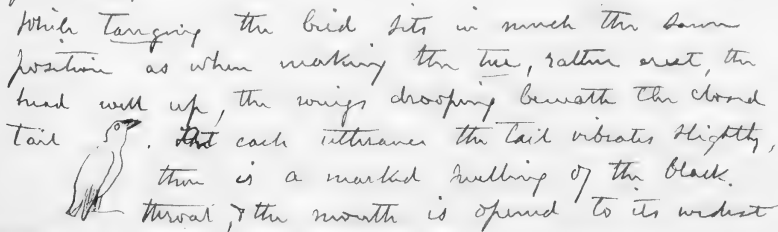 while tanging the bird sits in much the same
position as when making the tee, rather erect, the
head well up, the wings drooping beneath the closed
tail . At each utterance the tail vibrates slightly,
there is a marked swelling of the black
throat, & the mouth is opened to its widest